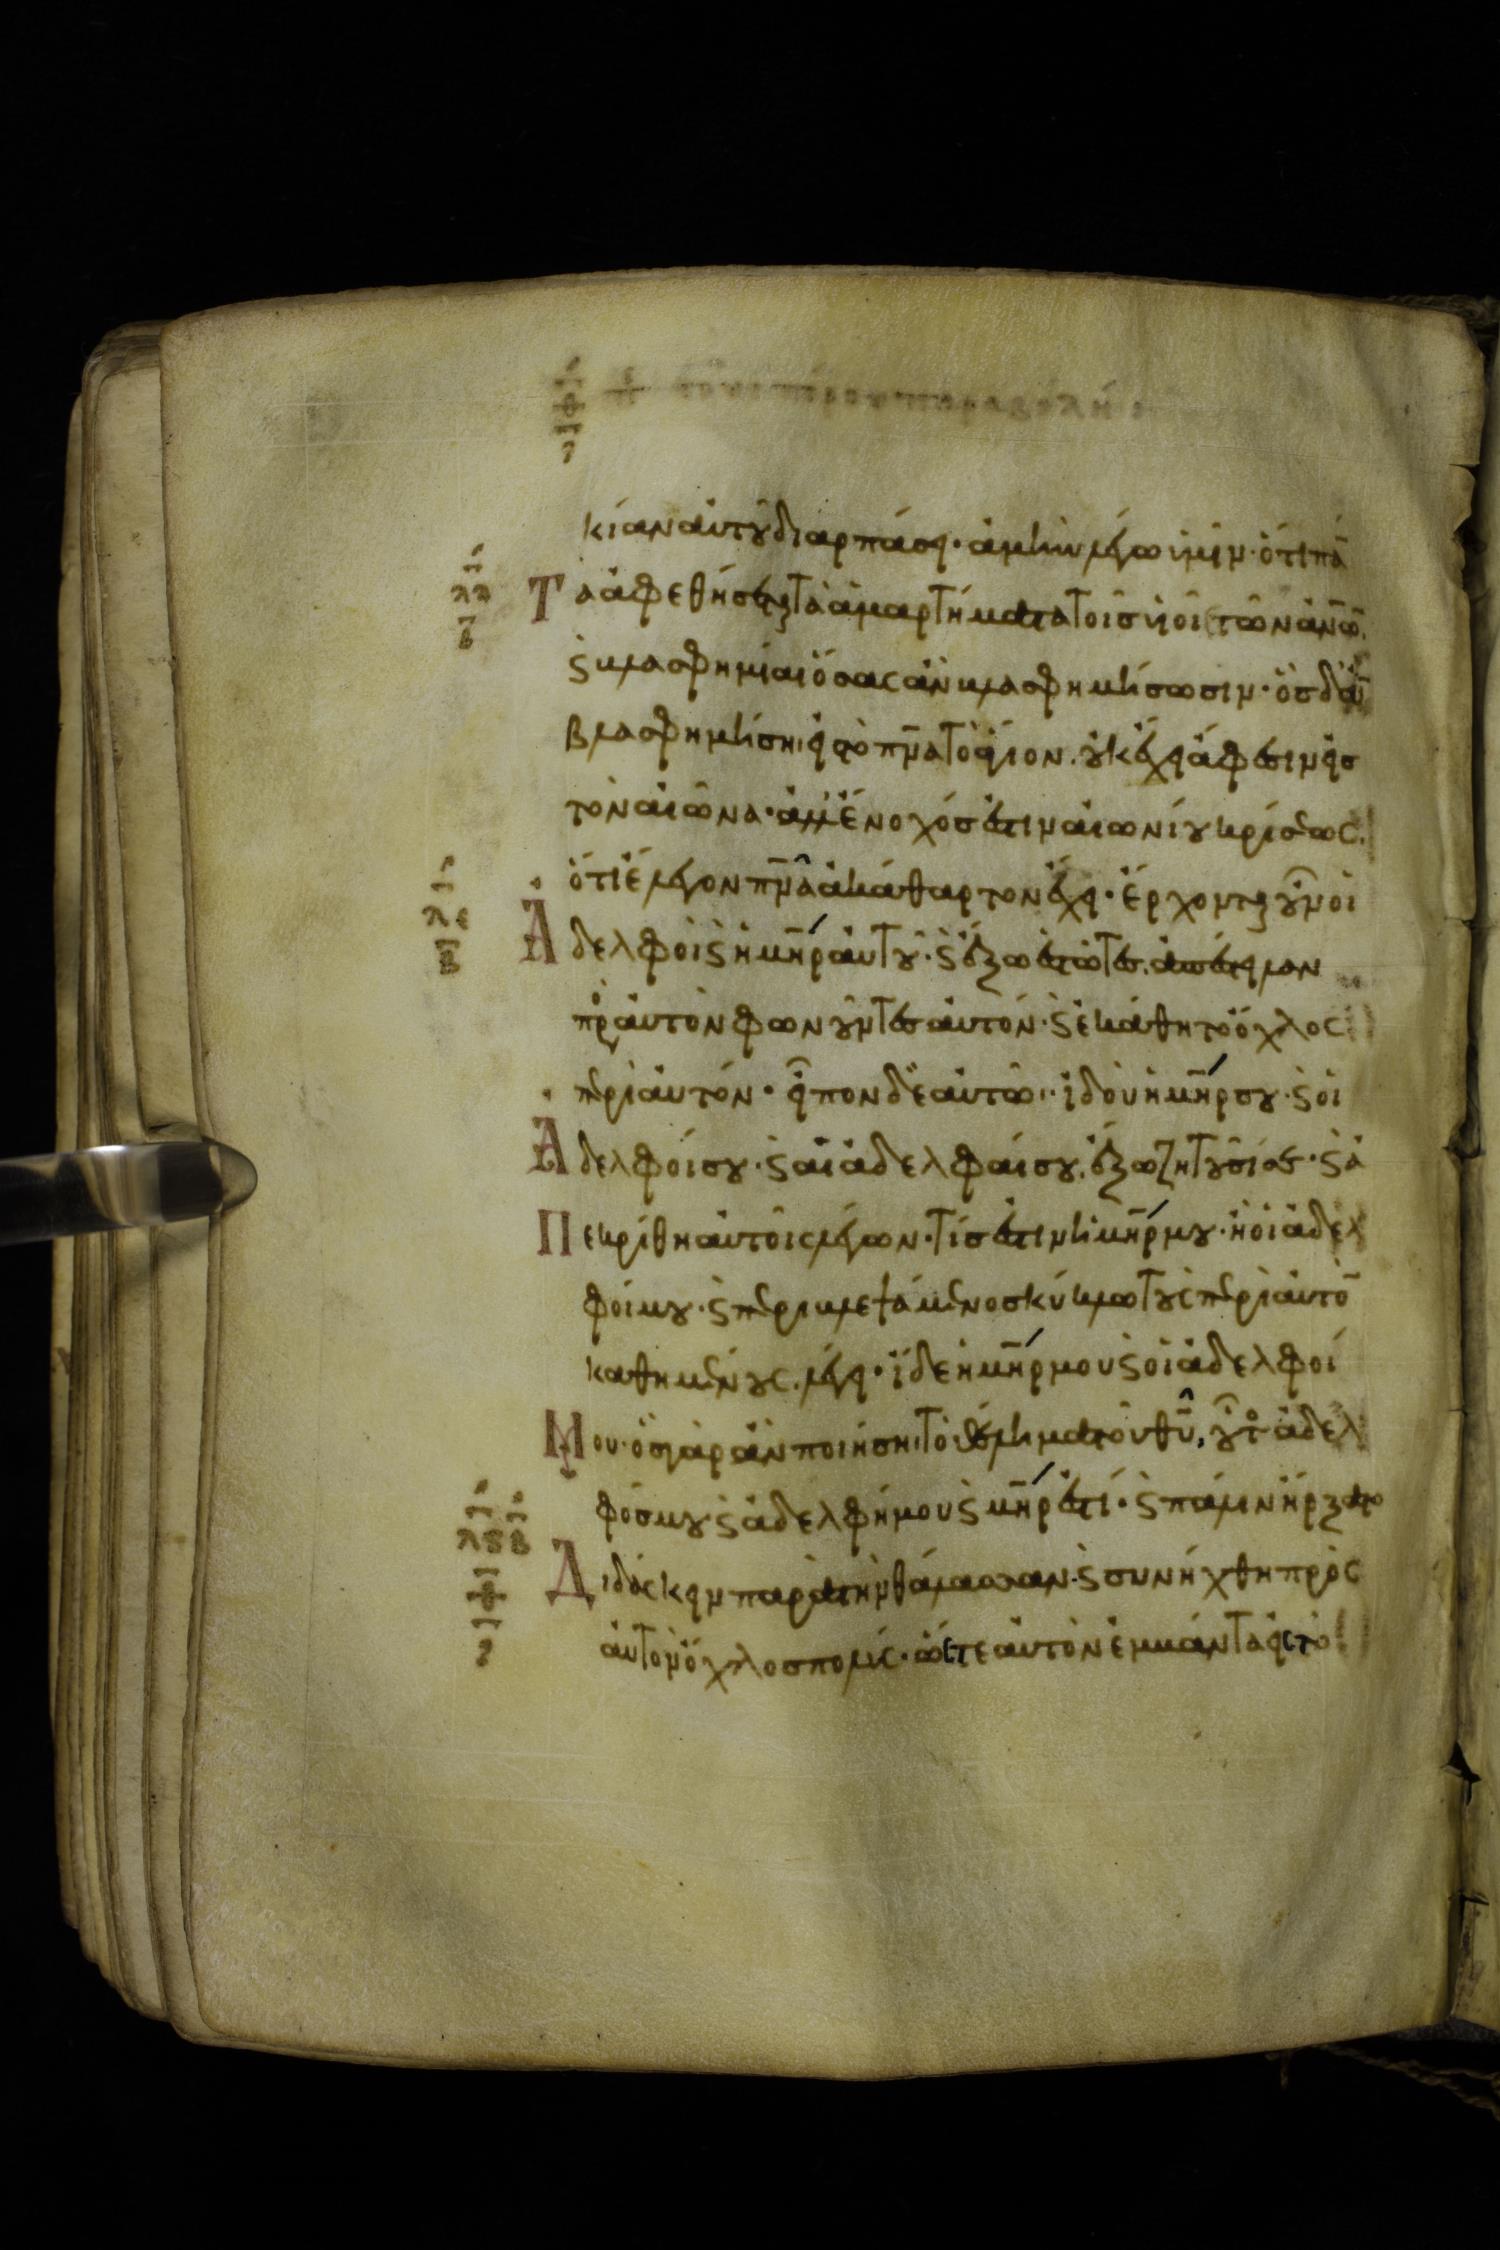 τοῦ σπόρου παραβολή
κίαν αὐτοῦ διαρπάσει· ἀμὴν λέγω ὑμῖν· ὅτι πᾶ
Τα ἀφεθήσεται τὰ ἁμαρτήματα τοῖς υἱοῖς τῶν ἀν̅ω̅ν.
ϛ βλασφημίαι ὅσας ἂν βλασφημήσωσιν· ὃς δ' ἂν
βλασφημήση, εἰς τὸ πν̅α τὸ ἅγιον. οὐκ ἔχει ἄφεσιν εἰς
τὸν αἰῶνα· ἀλλ' ἔνοχός ἐστιν αἰωνίου κρίσεως.
ὅτι ἔλεγον πν̅α ἀκάθαρτον ἔχει· ἔρχονται οὖν οἱ
Ἀδελφοὶ ϛ ἡ μη̅ρ αὐτοῦ· ϛ ἔξω ἑστῶτες. ἀπέστειλαν
πρὸς αὐτὸν φωνοῦντες αὐτόν· ϛ ἐκάθητο ὄχλος
περὶ αὐτόν· εἶπον δὲ αὐτῶ· ἰδοὺ ἡ μη̅ρ σου· ϛ οἱ
Ἀδελφοί σου· ϛ αἱ ἀδελφαί σου, ἔξω ζητοῦσί σε· ϛ ἀ
Πεκρίθη αὐτοῖς λέγων· τίς ἐστιν ἡ μη̅ρ μου· ἢ οἱ ἀδελ
φοί μου· ϛ περιβλεψάμενος κύκλω τοὺς περὶ αὐτὸ̅
καθημένους. λέγει· ἴδε ἡ μη̅ρ μου ϛ οἱ ἀδελφοί
Μου· ὃς γὰρ ἂν ποιήση τὸ θέλημα τοῦ θυ̅, οὗτος ἀδελ
φός μου ϛ ἀδελφή μου ϛ μη̅ρ ἐστί· ϛ πάλιν ἤρξατο
Διδάσκειν παρὰ τὴν θάλασσαν· ϛ συνήχθη πρὸς
αὐτὸν ὄχλος πολύς· ὥστε αὐτὸν ἐμβάντα εἰς τὸ